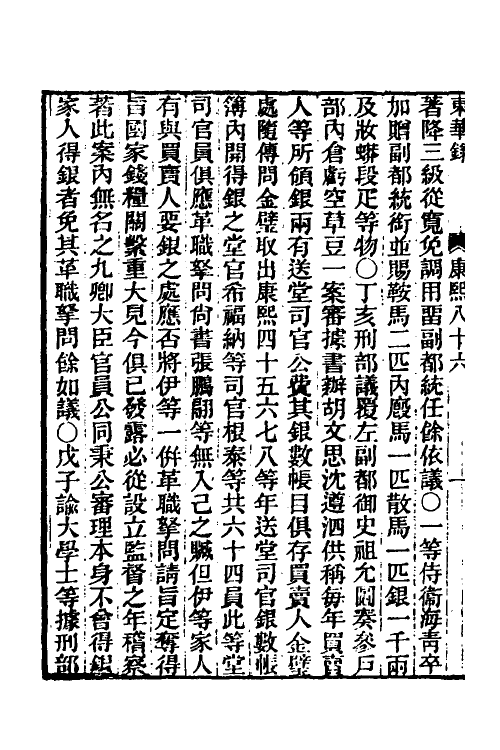 東華錄 康熙八十六 一
著降三級從寬免調用畱副都統任餘依議〇一等侍衛海青卒
加贈副都統銜並賜鞍馬二匹內廄馬一匹散馬一匹銀一千兩
及妝蟒段疋等物〇丁亥刑部議覆左副都御史祖允圖奏參戶
部內倉虧空草豆一案審據書辦胡文思沈遵泗供稱每年買賣
人等所領銀兩有送堂司官公費其銀數帳目俱存買賣人金璧
處隨傳問金璧取出康熙四十五六七八等年送堂司官銀數帳
簿內開得銀之堂官希福納等司官根泰等共六十四員此等堂
司官員俱應革職拏問尙書張鵬翮等無入己之贓但伊等家人
有與買賣人要銀之處應否將伊等一併革職拏問請旨定奪得
旨國家錢糧關繫重大見今俱已發露必從設立監督之年稽察
若此案內無名之九卿大臣官員公同秉公審理本身不曾得銀
家人得銀者免其革職拏問餘如議〇戊子諭大學士等據刑部